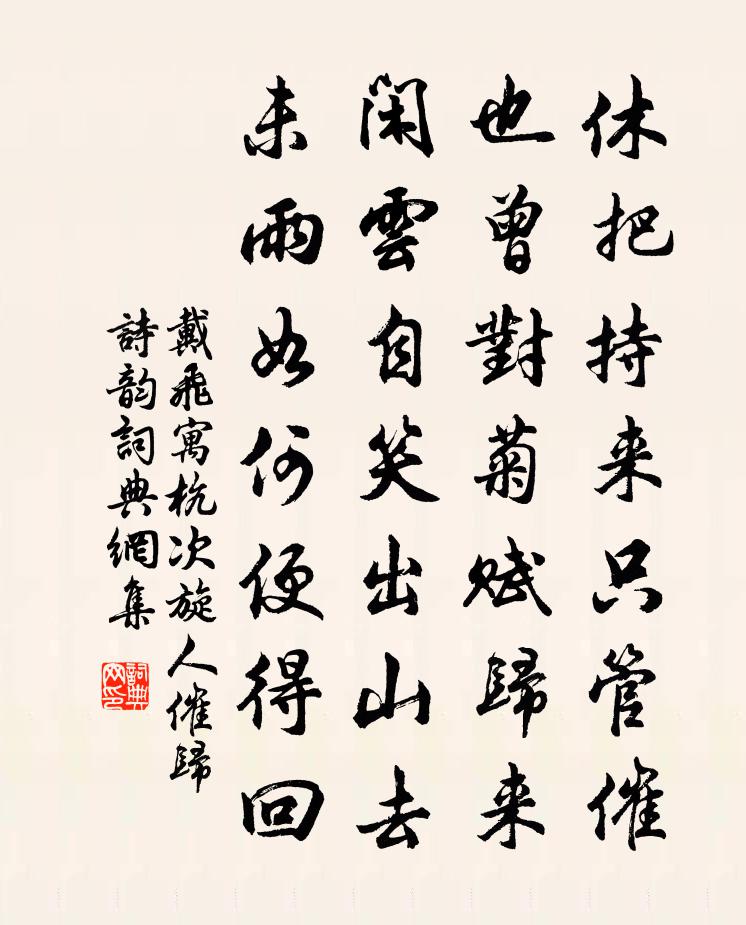 休把持来只管催
也曾對菊賦歸来
閑雲自笑出山去
未雨如何便得回
戴飛寓杭次旋人催歸
詩韵詞典網集
詞典
网印